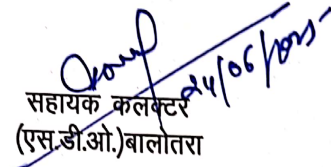 24/06/2025
सहायक कलक्टर
(एस.डी.ओ.)बालोतरा